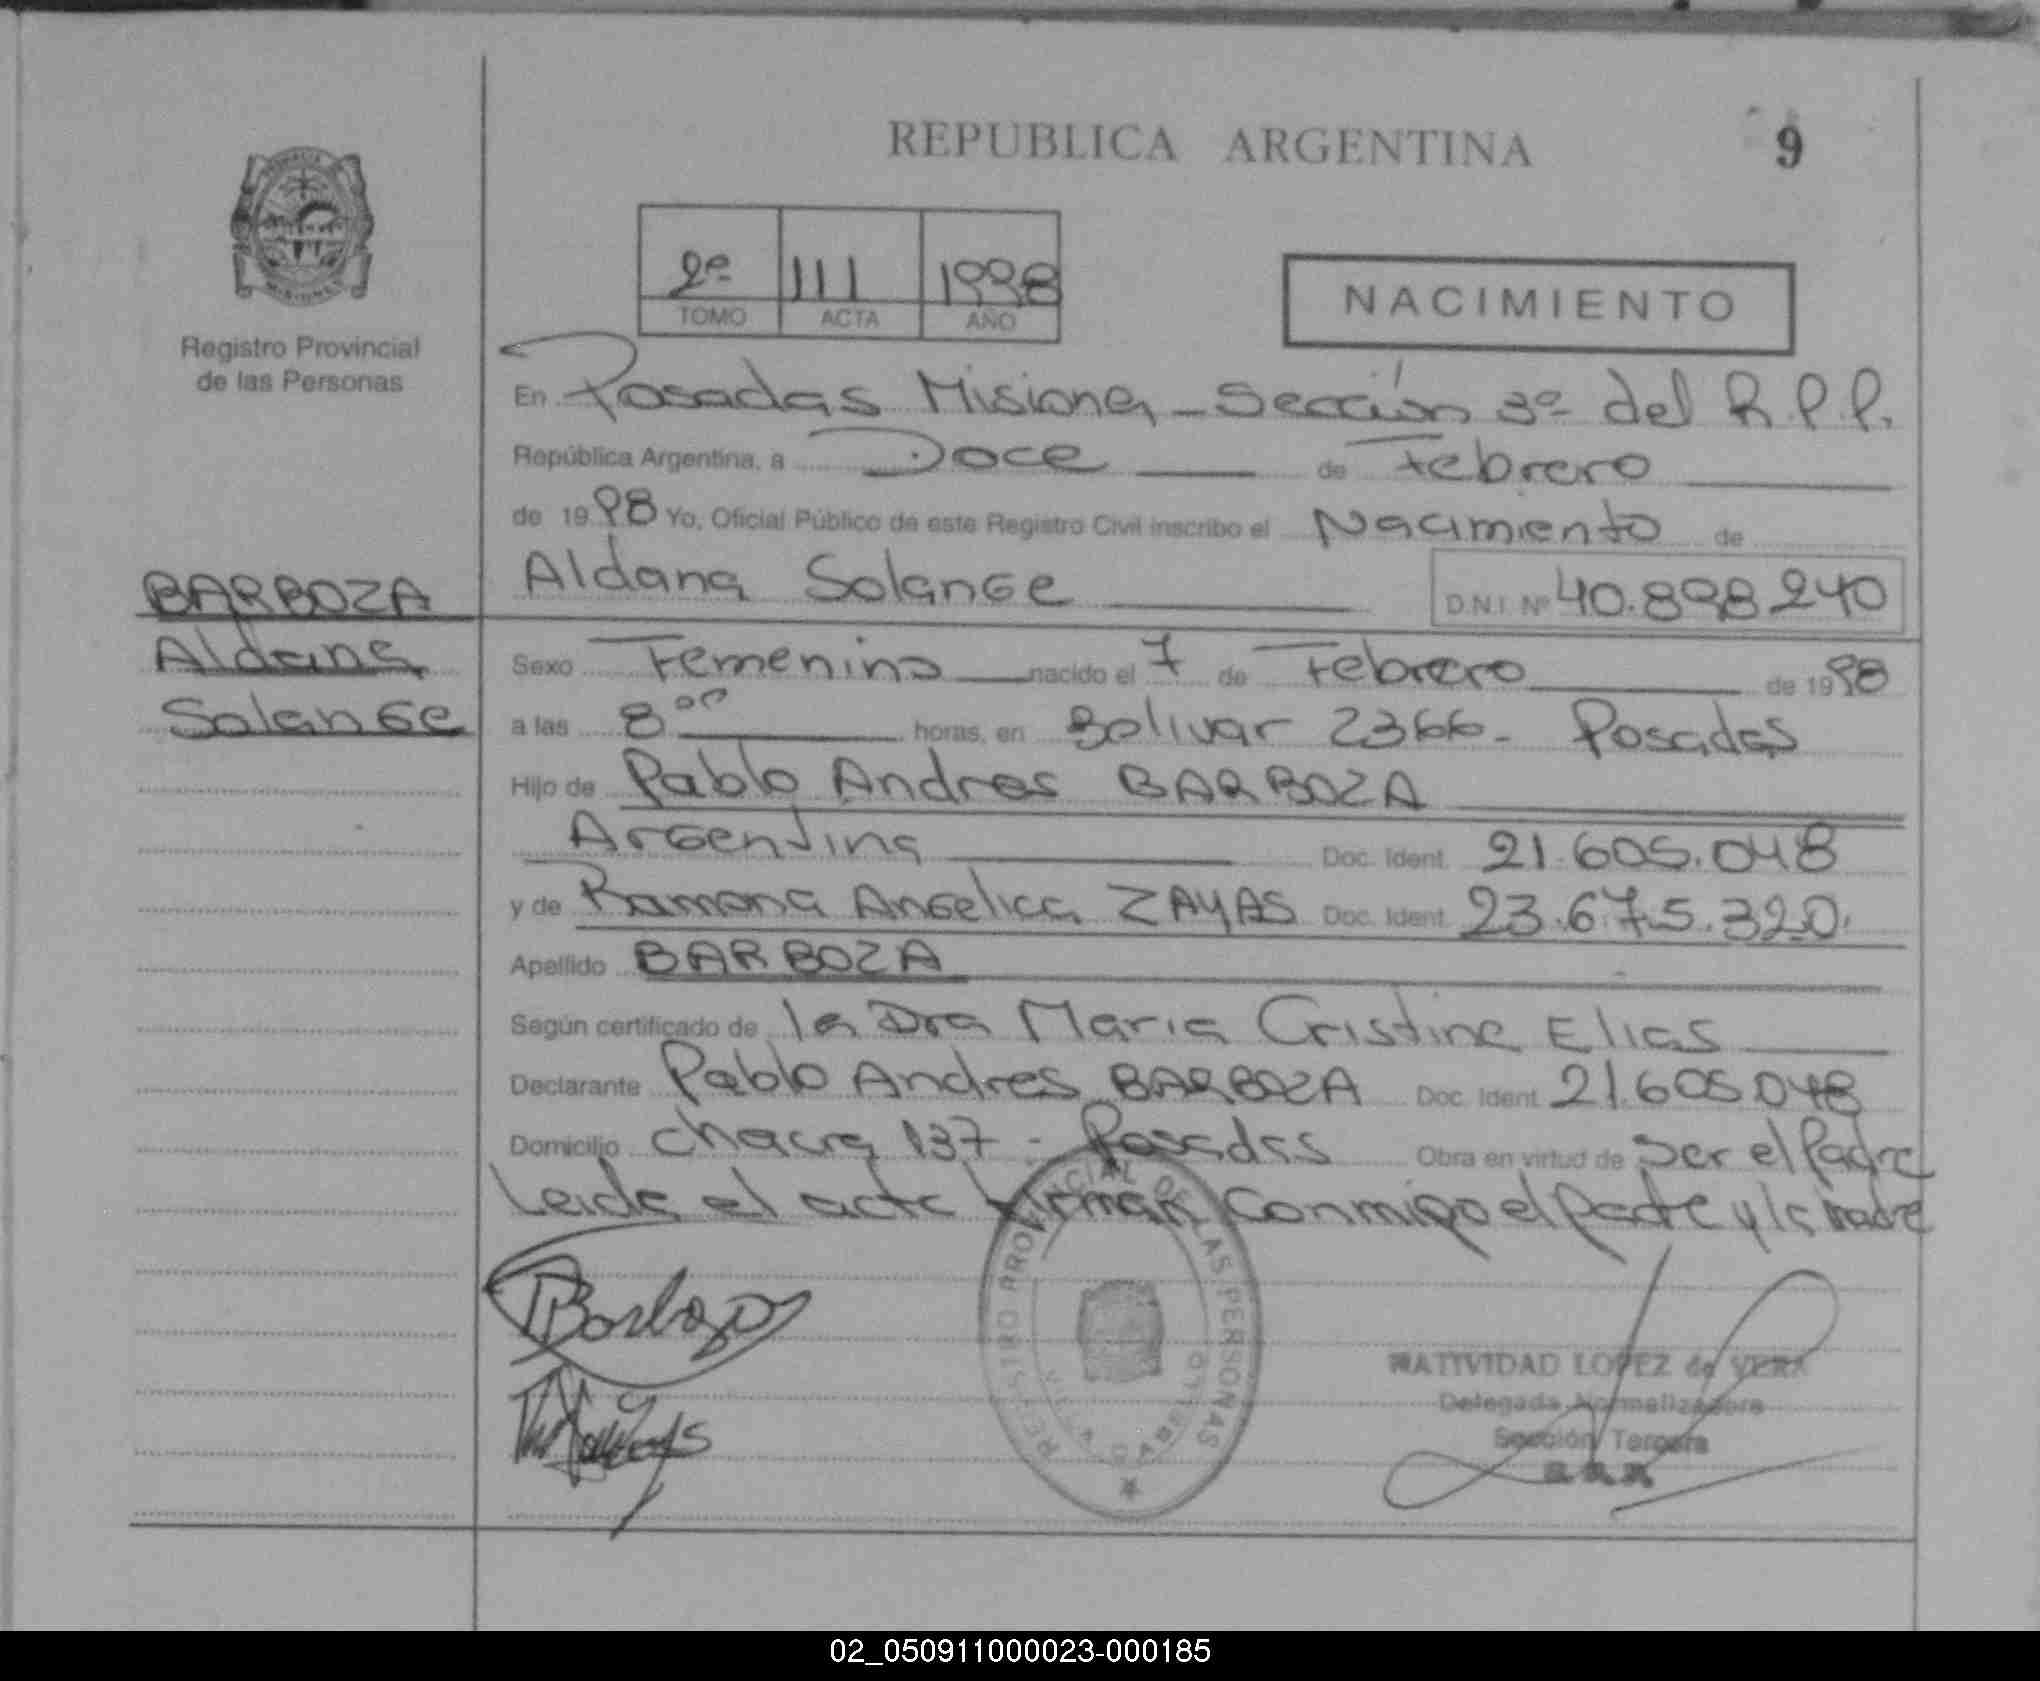 REPUBLICA ARGENTINA
9
2º 111 1998
TOMO ACTA AÑO
NACIMIENTO
MISIONES
Registro Provincial
de las Personas
En Posadas Misiones - Sección 3º del R.P.P.
República Argentina, a Doce de Febrero
de 1998 Yo, Oficial Público de este Registro Civil inscribo el Nacimiento de
Aldana Solange D.N.I. Nº 40.898240
BARBOZA
Aldana
Solange
Sexo Femenino nacido el 7 de Febrero de 1998
a las 8ºº horas, en Bolivar 2366- Posadas
Hijo de Pablo Andres BARBOZA
Argentina Doc. Ident. 21.605.048
y de Ramona Angelica ZAYAS Doc. Ident. 23.675.320.
Apellido BARBOZA
Según certificado de la Dra Maria Cristina Elias
Declarante Pablo Andres BARBOZA Doc. Ident. 21.605.048
Domicilio chacra 137 - Posadas Obra en virtud de ser el Padre
Leida el acta firman conmigo el Padre y la madre
REGISTRO PROVINCIAL DE LAS PERSONAS
VILLA CABELLO
NATIVIDAD LOPEZ de VERA
Delegada Normalizadora
Sección Tercera
02_050911000023-000185